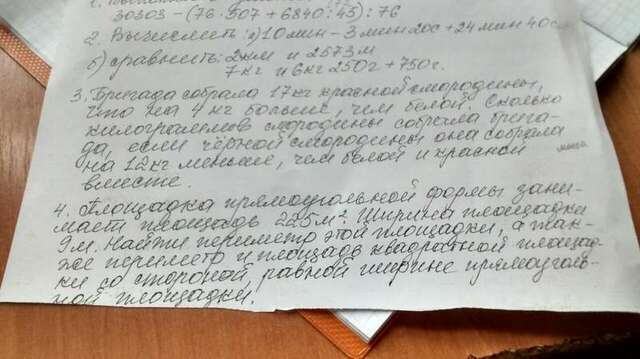 30303 - (76·507 + 6840:45):76
2. Вычислить: а) 10 мин - 3 мин 20с + 24 мин 40с
б) сравнить: 2 км и 2573 м
7 кг и 6 кг 250 г + 750 г.
3. Бригада собрала 17 кг красной смородины,
что на 4 кг больше, чем белой. Сколько
килограммов смородины собрала брига-
да, если чёрной смородины она собрала
на 12 кг меньше, чем белой и красной
вместе.
4. Площадка прямоугольной формы зани-
мает площадь 225 м². Ширина площадки
9 м. Найти периметр этой площадки, а так-
же периметр и площадь квадратной площад-
ки со стороной, равной ширине прямоуголь-
ной площадки.